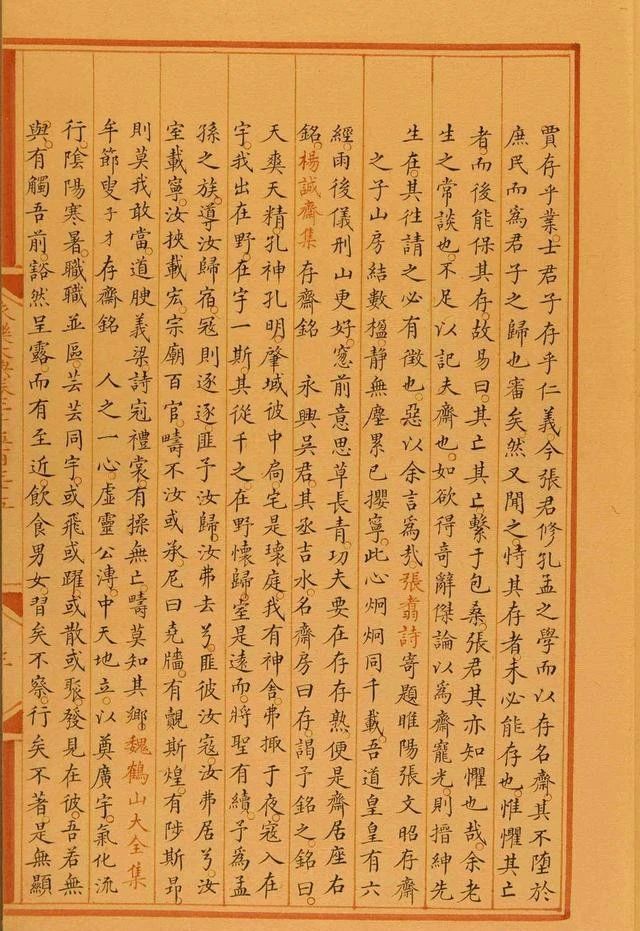 賈存乎業。士君子存乎仁義。今張君修孔孟之學。而以存名齋。其不墮於
庶民而爲君子之歸也審矣。然又聞之。恃其存者。未必能存也。惟懼其亡
者。而後能保其存。故易曰。其亡其亡。繫于包桑。張君其亦知懼也哉。余老
生之常談也。不足以記夫齋也。如欲得奇辭傑論。以爲齋寵光。則搢紳先
生在。其往請之。必有徵也。惡以余言爲哉。張翥詩寄題睢陽張文昭存齋
之子山房結數楹。静無塵累已攖寧。此心炯炯同千載。吾道皇皇有六
經。雨後儀刑山更好。窓前意思草長青。功夫要在存存熟。便是齋居座右
銘。楊誠齋集 存齋銘 永興吳君。其丞吉水。名齋房曰存。謁予銘之。銘曰。
天奭天精。孔神孔明。肇城彼中。扃宅是瓌庭。我有神舍。弗掫于夜。寇入在
宇。我出在野。在宇一斯。其從千之。在野懷歸。室是遠而。將聖有續。予爲孟
孫之族。導汝歸宿。寇則逐逐。匪予汝歸。汝弗去兮。匪彼汝寇。汝弗居兮。汝
室載寧。汝挾載宏。宗廟百官。疇不汝或承。尼曰堯牆。有覿斯煌。有陟斯昂
則莫我敢當。道腴義梁。詩冠禮裳。有操無亡。疇莫知其鄉。魏鶴山大全集
牟節叟子才存齋銘 人之一心。虛靈公溥。中天地立。以奠廣宇。氣化流
行。陰陽寒暑。職職並區。芸芸同宇。或飛或躍。或散或聚。發見在彼。吾若無
與。有觸吾前。谿然呈露。而有至近。飲食男女。習矣不察。行矣不著。是無顯